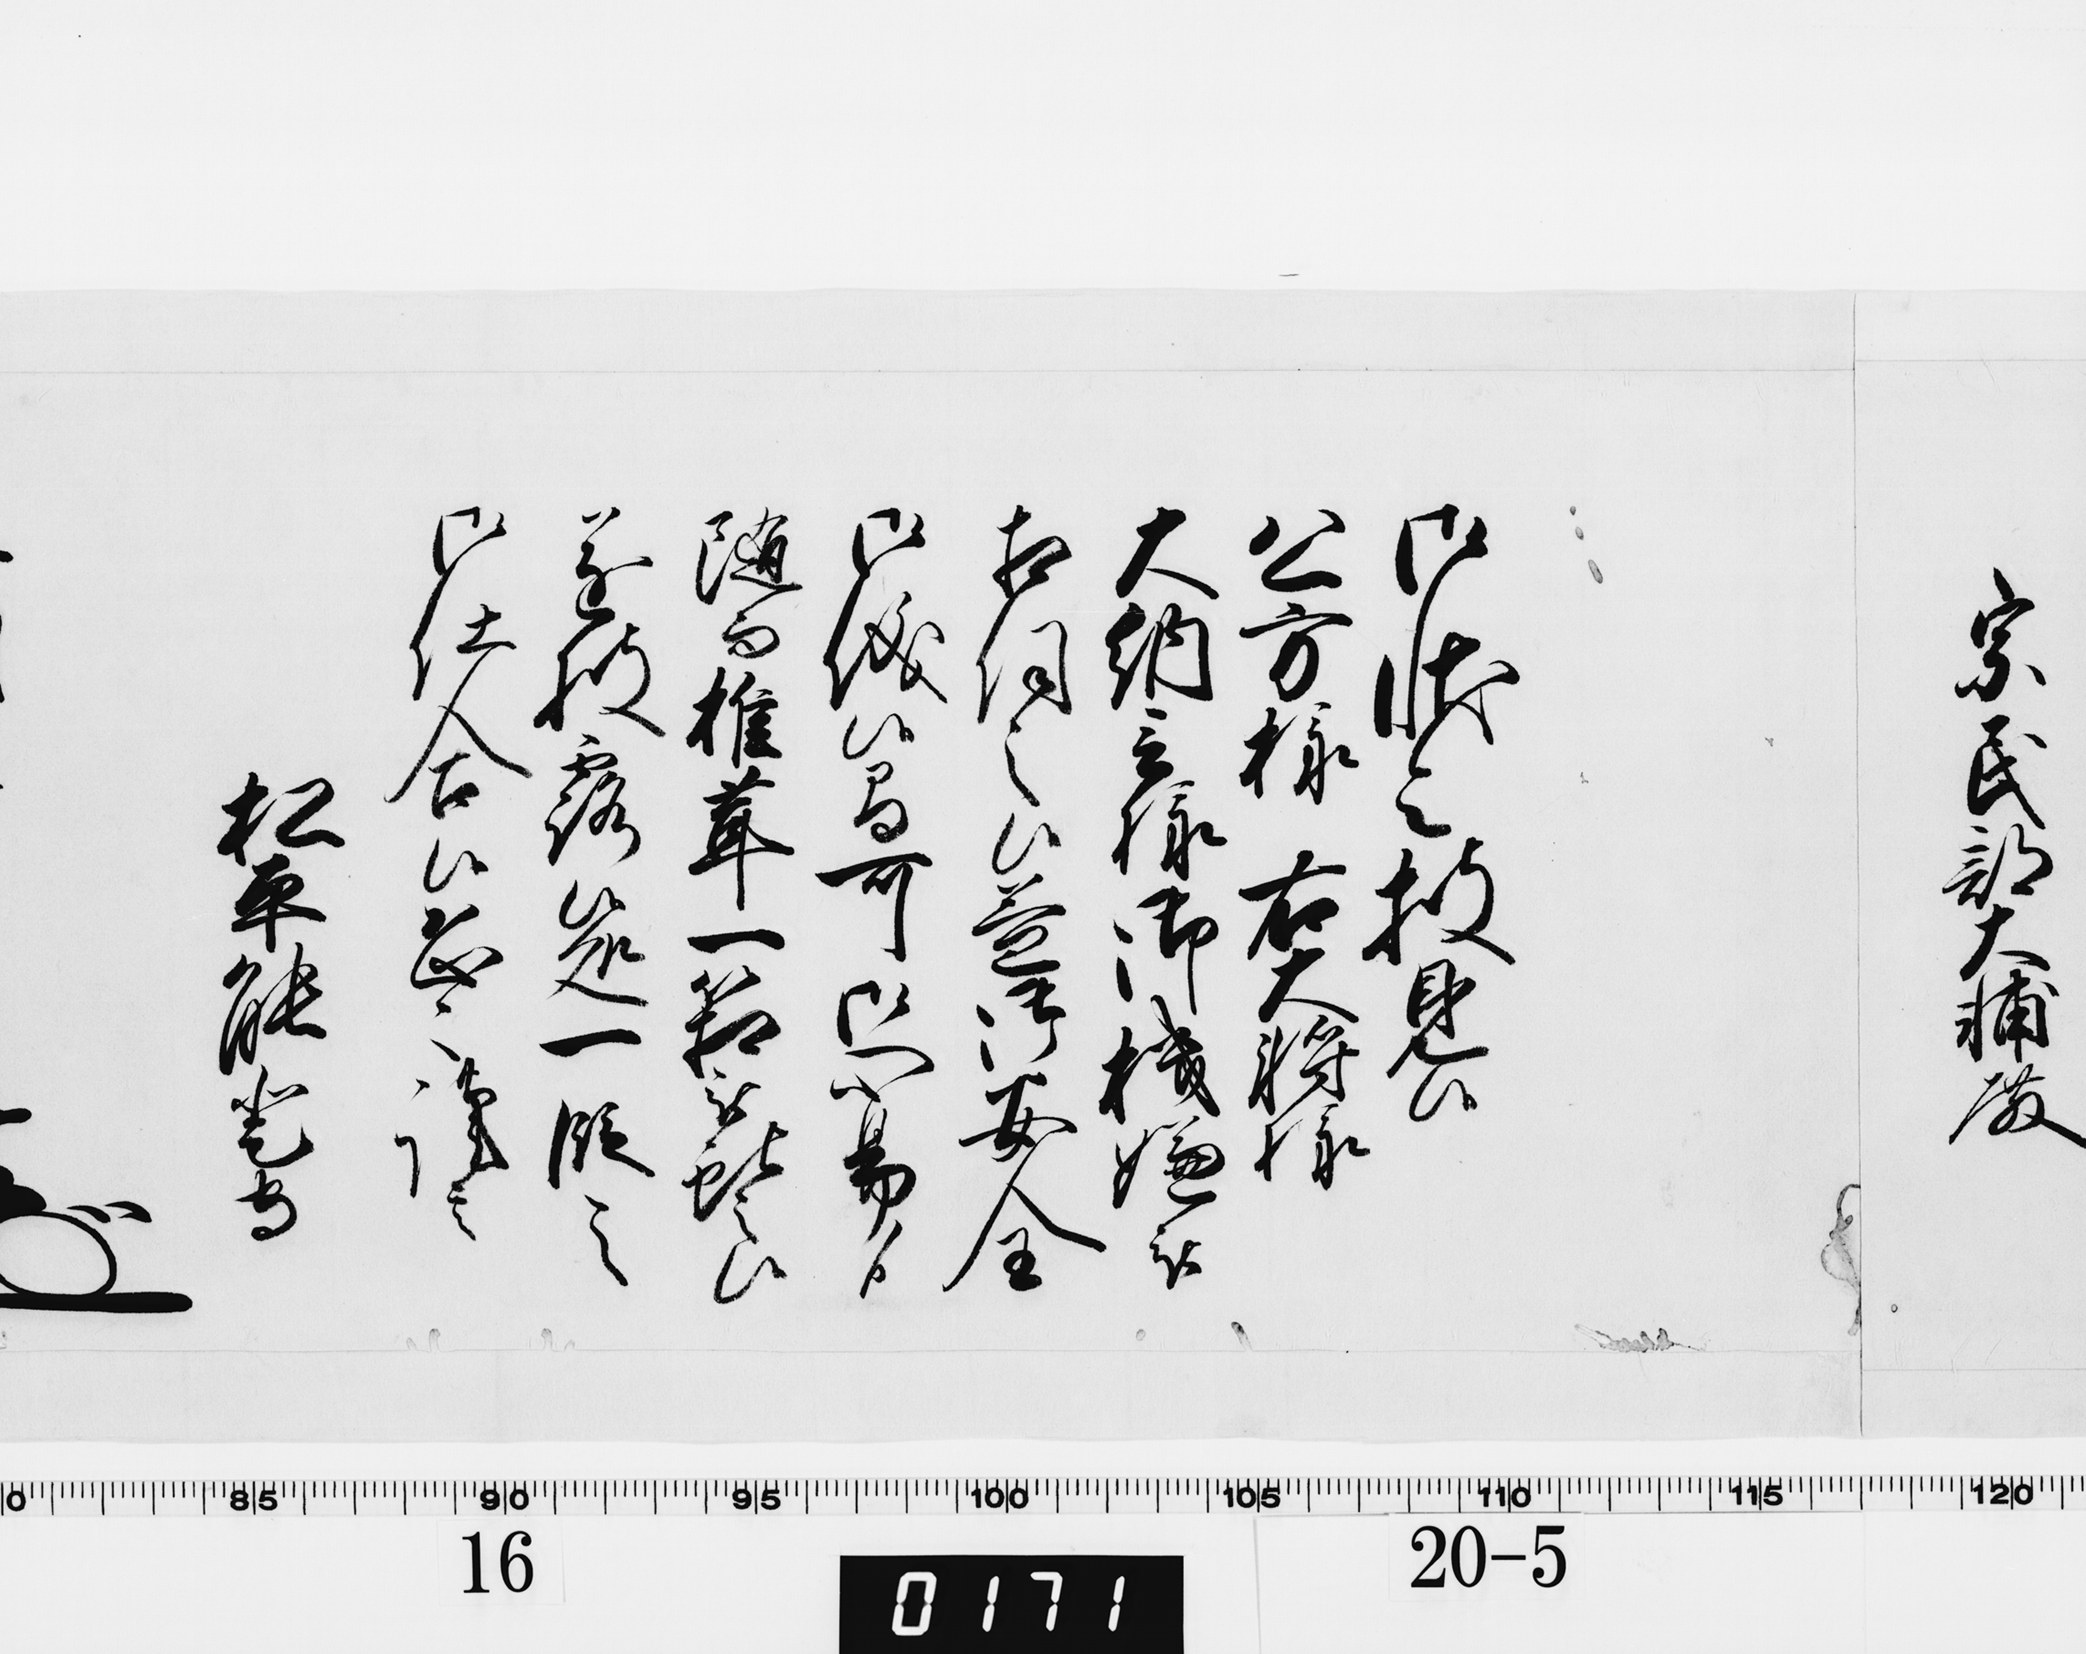 宗民部大輔殿
御状令披見候
公方様 右大将様
大納言様御機嫌被
相伺之候益御安全
御儀候間可御心易候
随而椎茸一箱被献之候
遂披露候処一段之
御仕合候恐々謹言
松平能登守
0 85 90 95 100 105 110 115 120
16
0171
20-5